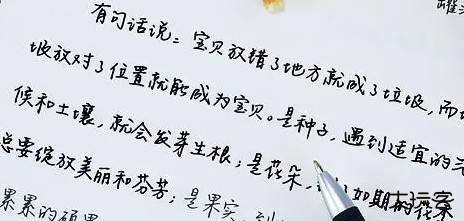 罐
有句话说：宝贝放错了地方就成了垃圾，而垃
圾放对了位置就能成为宝贝。是种子，遇到适宜的
候和土壤，就会发芽生根；是花朵，如期的花
总要绽放美丽和芬芳；是果实，到
累累的硕果
十玩客